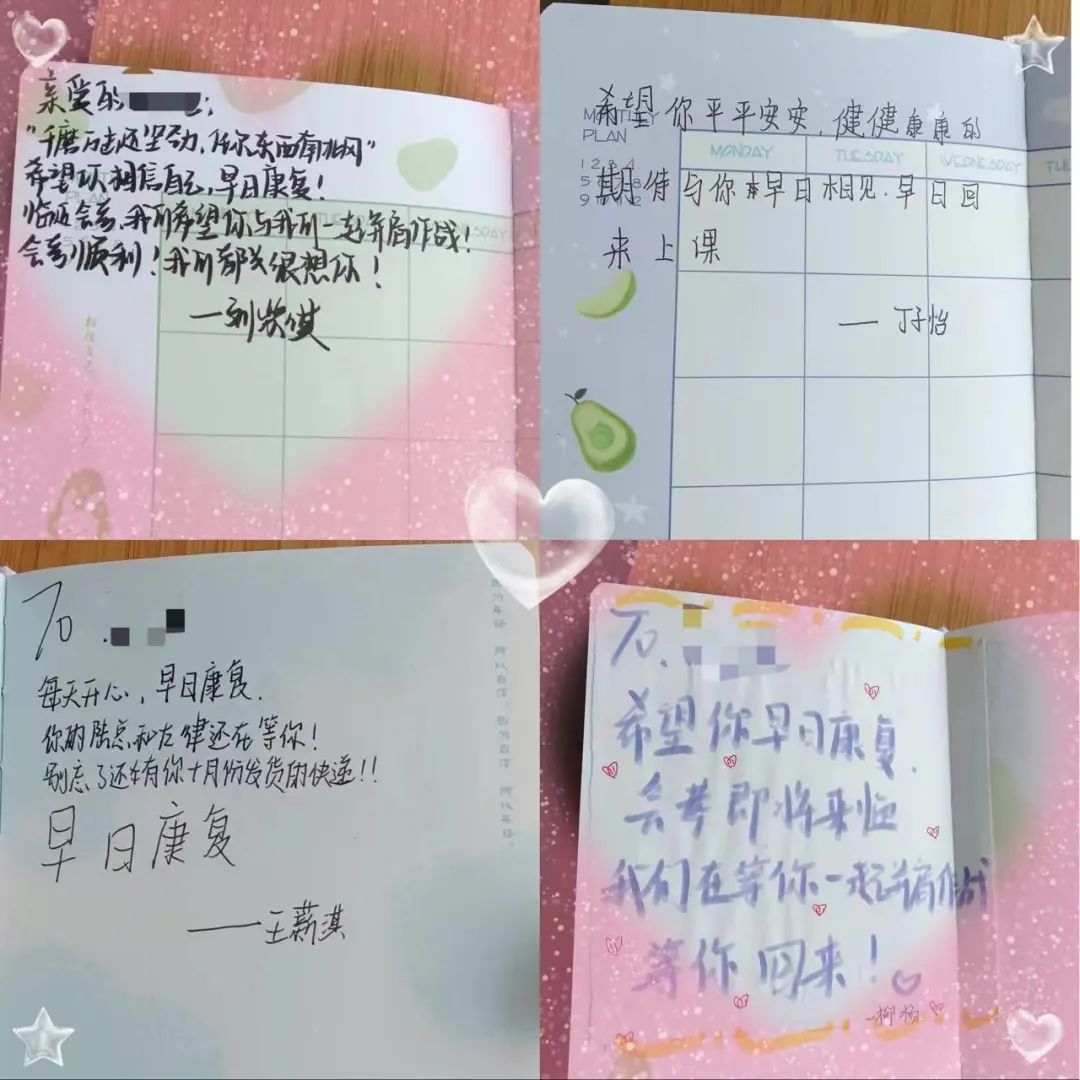 亲爱的
"千磨万击还坚劲,任尔东西南北风"
希望 相信自己,早日康复!
临近会考,我们希望你与我们一起并肩作战!
会考顺利!我们都很想你!
MONTHLY
PLAN
希望你平平安安,健健康康的
MONDAY
TUESDAY
WEDNESDAY
期待与你早日相见.早日回
来上课
——丁子怡
To.
每天开心,早日康复.
你的陆总和左律还在等你!
别忘了还有你十月份发货的快递!!
早日康复
——王薪淇
To.
希望你早日康复.
会考即将来临
我们在等你一起并肩作战
等你回来!
-柳杨